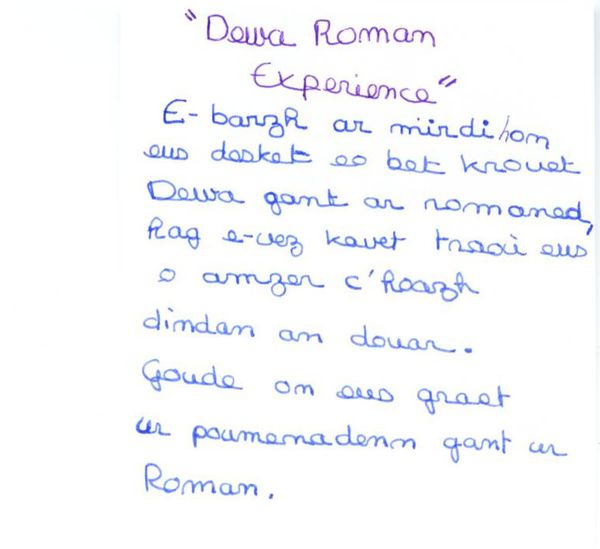 "Dewa Roman
Experience"
E-barzh ar mirdi hom
eus desket eo bet krouet
Dewa gant ar romaned,
hag e-vez kavet traoù eus
o amzer c'hoazh
dindan an douar.
Goude om eus graet
ur poumenadenn gant ur
Roman.